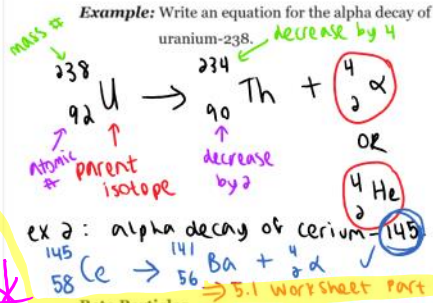 Example: Write an equation for the alpha decay of
uranium-238.
mass #
decrease by 4
238 234 4
U → Th + α
92 90 2
OR
atomic #
parent isotope
decrease by 2
4
He
2
ex 2: alpha decay of cerium-145
145 141 4
Ce → Ba + α ✓
58 56 2
⇒ 5.1 worksheet part